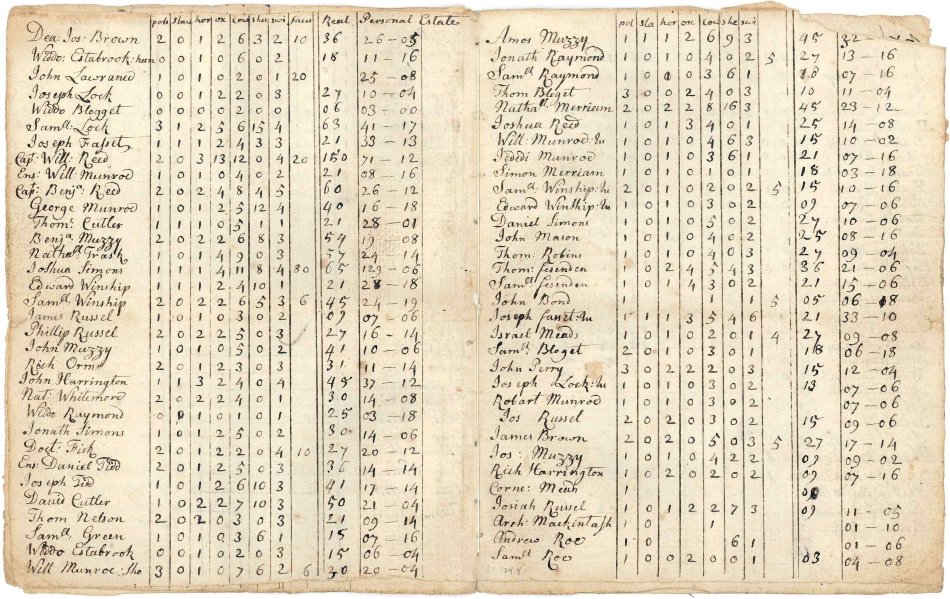 pols slau hor ox cow she swi facu Real Personal Estate
Dea: Jos: Brown 2 0 1 2 6 3 2 10 36 26-05
Widdo: Estabrook: 0 0 1 0 6 0 2 18 11-16
John Lawraned 1 0 1 0 2 0 1 20 25-08
Joseph Lock 1 0 1 2 2 0 3 27 10-04
Widdo Blogget 0 0 0 0 2 0 0 06 03-00
Samll: Lock 3 1 2 5 6 15 4 63 41-17
Joseph Fasset 1 1 1 2 4 3 3 21 33-13
Cap: Will: Reed 2 0 3 13 12 0 4 20 150 71-12
Ens: Will: Munrod 1 0 1 0 4 0 2 21 08-16
Cap: Benja: Reed 2 0 2 4 8 4 5 60 26-12
George Munrod 1 0 1 2 5 12 4 40 16-18
Thom: Cutler 1 1 1 0 5 1 1 21 28-01
Benja: Muzzy 2 0 2 2 6 8 3 54 19-08
Nathall: Trask 1 0 1 4 9 0 3 57 24-14
Joshua Simons 1 1 1 4 11 8 4 80 65 129-06
Edward Winship 1 1 1 2 4 10 1 21 28-18
Samll Winship 2 0 2 2 6 5 3 6 45 24-19
James Russel 1 0 1 0 3 0 2 09 07-06
Phillip Russel 2 0 2 2 5 0 3 27 16-14
John Muzzy 1 0 1 0 5 0 2 41 10-06
Rich Orm 2 0 1 2 3 0 3 31 11-14
John Harrington 1 1 3 2 4 0 4 48 37-12
Nat: Whitemore 2 0 2 2 4 0 1 30 14-08
Widdo Raymond 0 0 1 0 1 0 1 25 03-18
Jonath Simons 1 0 1 2 5 0 2 30 14-06
Doct: Fisk 1 0 1 2 2 0 4 10 27 20-12
Ens: Daniel Tedd 2 0 1 2 5 0 3 36 14-14
Joseph Tedd 1 0 1 2 6 10 3 41 17-14
David Cutler 1 0 2 2 7 10 3 50 21-04
Thom Nelson 2 0 2 0 3 0 3 21 09-14
Samll Green 1 0 1 0 3 6 1 15 07-16
Widdo Estabrook 0 0 1 0 2 0 3 15 06-04
Will Munroe: 3 0 1 0 7 6 2 6 30 20-04
pol sla hor ox cow she swi
Amos Muzzy 1 1 1 2 6 9 3 45 32-
Jonath Raymond 1 0 1 0 4 0 2 5 27 13-16
Samll Raymond 1 0 1 0 3 6 1 18 07-16
Thom Bloget 3 0 0 2 4 0 3 10 11-04
Nathall: Merriam 2 0 2 2 8 16 3 45 23-12
Joshua Reed 1 0 1 3 4 0 1 25 14-08
Will: Munrod: 1 0 1 0 4 6 3 15 10-02
Jedidi Munrod 1 0 1 0 3 6 1 21 07-16
Simon Merriam 1 0 1 0 1 0 1 18 03-18
Samll Winship: 2 0 1 0 2 0 2 5 15 10-16
Edward Winship: 1 0 1 0 3 0 2 09 07-06
Daniel Simons 1 0 1 0 5 0 2 27 10-06
John Mason 1 0 1 0 4 0 2 25 08-16
Thom Robins 1 0 1 0 4 0 3 27 09-04
Thom: Fesenden 1 0 2 4 5 4 3 36 21-06
Samll Fesenden 1 0 1 4 3 0 2 21 15-06
John Bond 1 1 1 5 05 06-18
Joseph Fasset: 1 1 1 3 5 4 6 21 33-10
Israel Meads 1 0 1 2 5 0 1 4 27 09-08
Samll: Bloget 2 0 1 0 3 0 1 18 06-18
John Perry 3 0 2 2 2 0 3 15 12-04
Joseph Lock: 1 0 1 0 3 0 2 13 07-06
Robart Munrod 1 0 1 0 3 0 2 07-06
Jos Russel 2 0 2 0 3 0 2 15 09-06
James Brown 2 0 2 0 5 0 3 5 27 17-14
Jos: Muzzy 1 0 1 0 4 2 2 09 09-02
Rich Harrington 1 0 2 0 2 0 2 09 07-16
Corne: Mean 1
Josiah Russel 1 0 1 2 2 7 3 09 11-05
Arch: Mackintash 1 0 1 01-10
Andrew Roe 1 0 6 1 01-06
Samll Roe 1 0 0 2 0 0 1 03 04-08
24.4